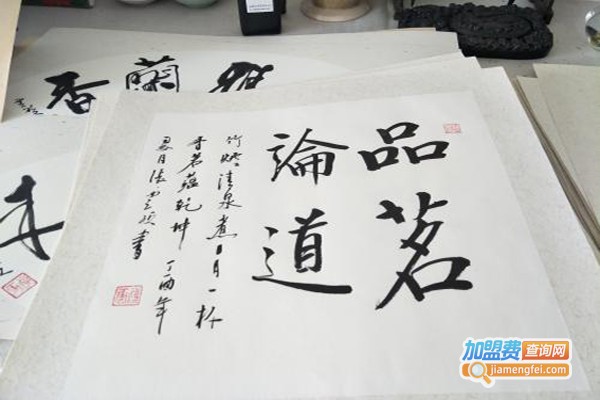 品茗
論道
竹炉清泉煮日月一杯
香茗蘊乾坤 丁酉年
月 書
蘭香
加盟费查询网
jiamengfei.com